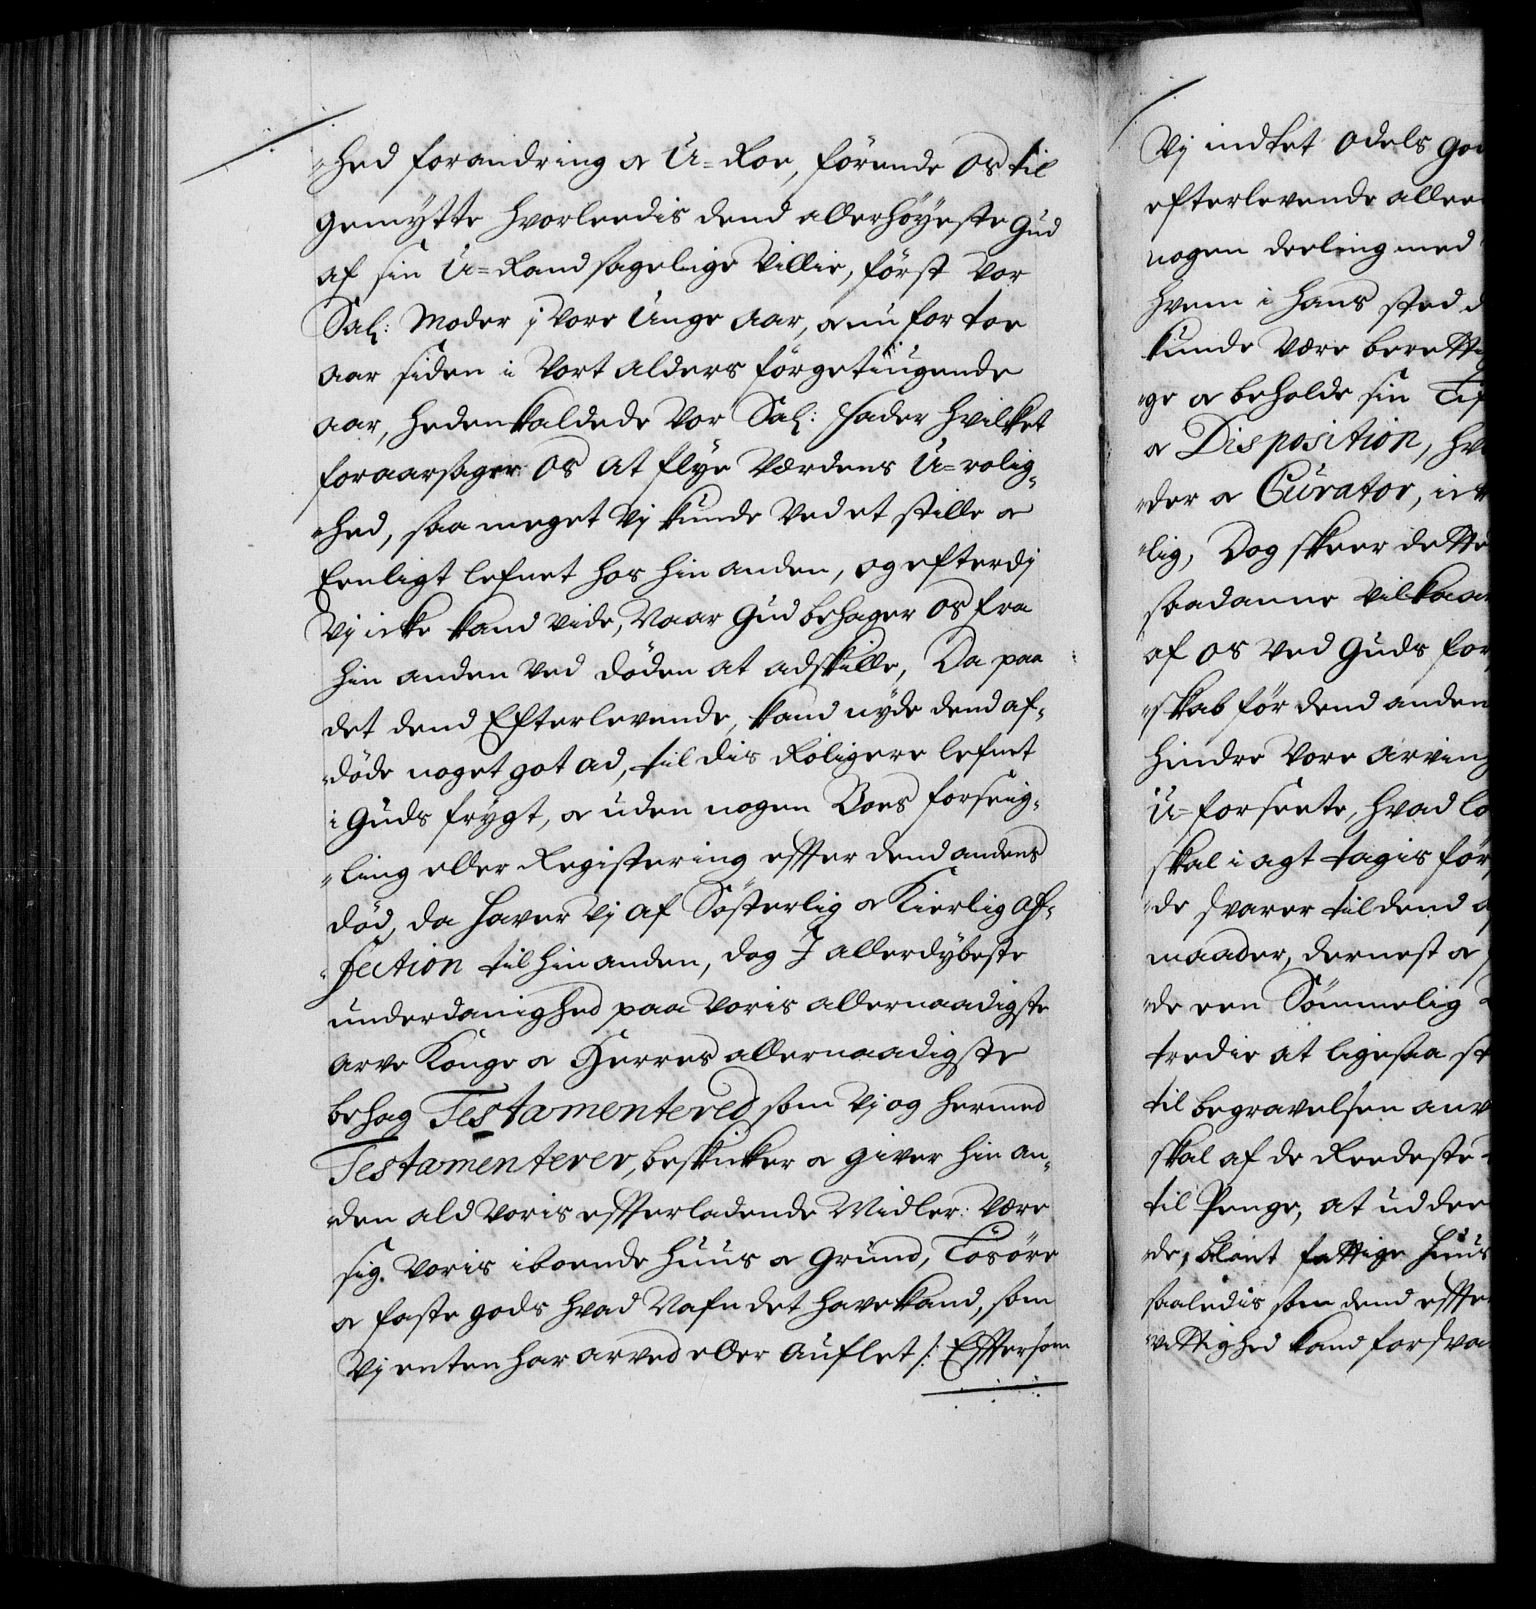 hed forandring og U=Roe, förende Os til
gemÿtte hvorleedis dend allerhöÿeste Gud
af sin U=Randsagelige Villie, först Vor
Sal: Moder i Vore Unge Aar, og nu for toe
Aar siden i Vort alders förgetiugende
Aar, hedenkaldede Vor Sal: Fader hvilket
foraarsager Os at flÿe Værdens U=rolig=
hed, saa meget Vj kunde Ved et stille og
Eenligt lefnet hos hin anden, og efterdj
Vj icke kand vide, Naar Gud behager Os fra
hin anden Ved döden at adskille, Da paa
det dend Efterlevende, kand nÿde dend af=
döde noget got ad, til dis Roligere lefnet
i Guds frÿgt, og uden nogen Boes forseig=
ling eller Registering effter dend andens
död, da haver Vj af Sösterlig og Kierlig aff=
fection til hin anden, dog I allerdÿbeste
underdanighed paa Voris allernaadigste
Arve Konge og Herres allernaadigste
behag Testamentered som Vj og hermed
Testamenterer, beskicker og giver hin an=
den ald Voris effterladende Midler: Være
sig. Voris iboende huus og Grund, Lösöre
og faste gods hvad Nafn det have kand, som
Vj enten har arved eller Auflet /: Efftersom
Vj indtet Odels God
efterlevende aller
nogen deeling med
hvem i hans sted
kunde Være beretti
ge og beholde sin
og Disposition, hv
der og Curator,
lig, Dog skeer dette
saadanne Vilkaar
af Os Ved Guds for
skab för dend anden
hindre Vore Arving
U=forseete, hvad
skal i agt tagis för
de svarer til dend
maader, dernest og
de een Sömmelig
tredie at ligesaa st
til begravelsen anv
skal af de Reedeste
til Penge, at uddee
de, blant fattige huus
saaledis som dend effte
vittighed kand forsva